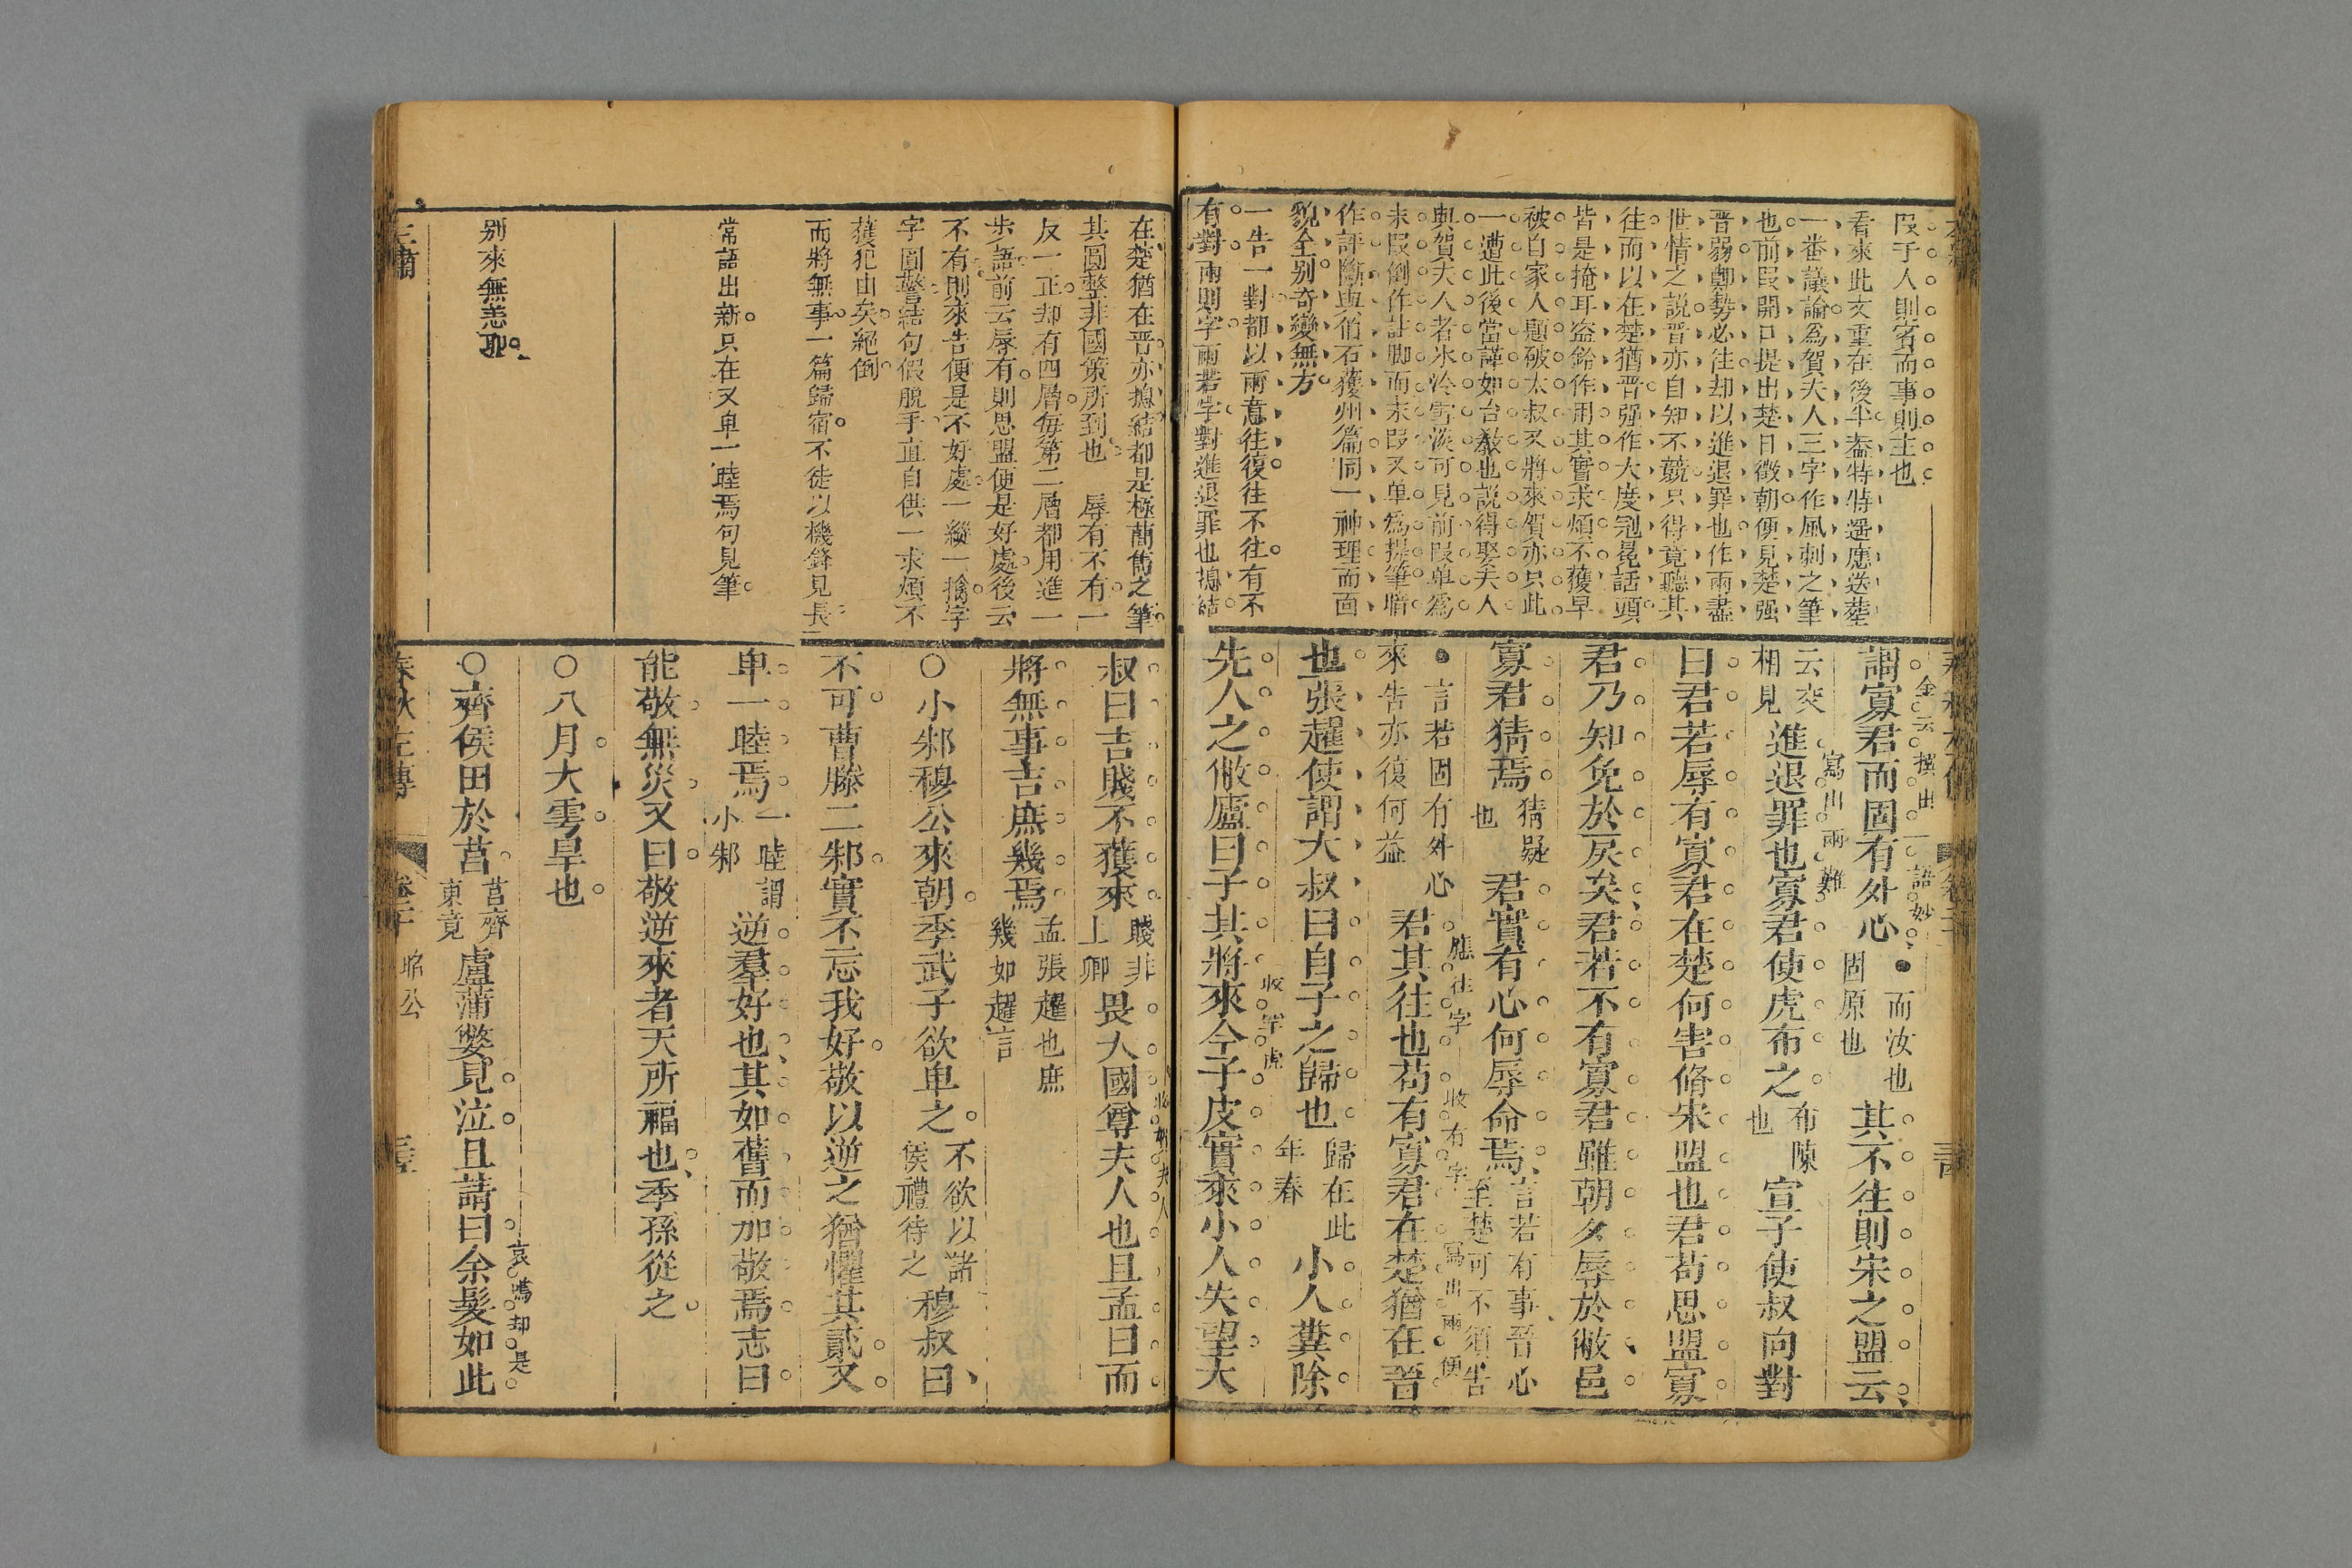 叚于人則客而事則主也
看來此文重在後半葢特特遥應送塟
一番議論爲賀夫人三字作風刺之筆
也前叚開口提出楚日徵朝便見楚强
晋弱鄭勢必往却以進退罪也作兩盡
世情之説晋亦自知不競只得竟聽其
往而以在楚猶晋强作大度冠冕話頭
皆是掩耳盗鈴作用其實求煩不獲早
被自家人題破太叔又將來賀亦只此
一遭此後當謹如台敎也説得娶夫人
與賀夫人者氷冷雪淡可見前叚单爲
末叚倒作註脚而末叚又单爲提筆暗
作評斷與伯石獲州篇同一神理而面
貌全别奇變無方
一告一對都以兩意往復往不往有不
有對兩則字兩若字對進退罪也揔結
謂寡君而固有外心 而汝也固原也 其不往則宋之盟云
金云撰出一語妙
云交相見 進退罪也寡君使虎布之 布陳也 宣子使叔向對
寫出兩難
曰君若辱有寡君在楚何害脩宋盟也君苟思盟寡
君乃知免於戾矣君若不有寡君雖朝夕辱於敝邑
寡君猜焉 猜疑也 君實有心何辱命焉 言若有事晉心至楚可不須告
言若固有外心來告亦復何益 君其往也苟有寡君在楚猶在晉
應往字 收有字 寫出兩便
也張趯使謂大叔曰自子之歸也 歸在此年春 小人糞除
先人之敝廬曰子其將來今子皮實來小人失望大
收罕虎
在楚猶在晋亦揔結都是極蕳雋之筆
其圓警非國策所到也 辱有不有一
反一正却有四層每第二層都用進一
步語前云辱有則思盟便是好處後云
不有則來告便是不好處一縱一擒字
字圓警結句假脫手直自供一求煩不
獲犯由矣絕倒
而將無事一篇歸宿不徒以機鋒見長
常語出新只在又卑一睦焉句見筆
别來無恙耶
叔曰吉賤不獲來 賤非上卿 畏大國尊夫人也且孟曰而
收賀夫人
將無事吉庶幾焉 孟張趯也庶幾如趯言
○小邾穆公來朝季武子欲卑之 不欲以諸侯禮待之 穆叔曰
不可曹滕二邾實不忘我好敬以逆之猶懼其貳又
卑一睦焉 一睦謂小邾 逆羣好也其如舊而加敬焉志曰
能敬無災又曰敬逆來者天所福也季孫從之
○八月大雩旱也
○齊侯田於莒 莒齊東竟 盧蒲嫳見泣且請曰余髮如此
哀鳴却是
春秋左傳 昭公